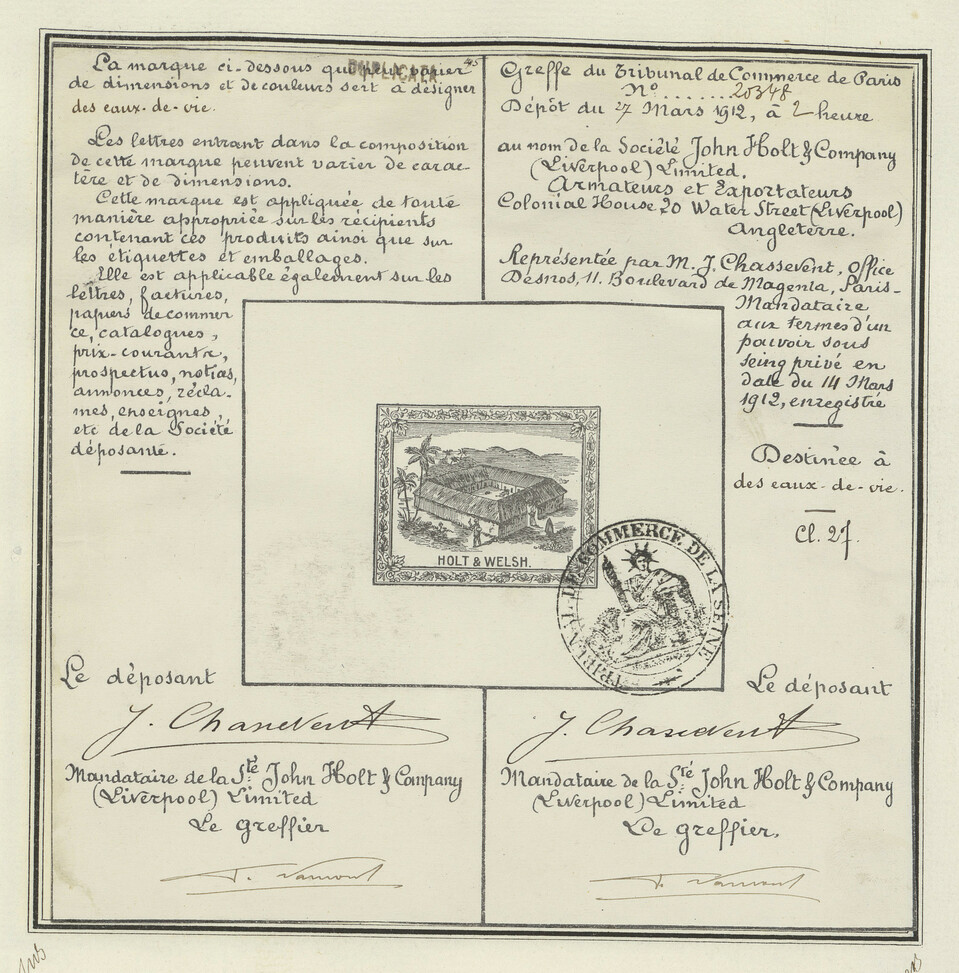 La marque ci-dessous qui peut varier
de dimensions et de couleurs sert à désigner
des eaux-de-vie.
Les lettres entrant dans la composition
de cette marque peuvent varier de carac-
tère et de dimensions.
Cette marque est appliquée de toute
manière appropriée sur les récipients
contenant ces produits ainsi que sur
les étiquettes et emballages.
Elle est applicable également sur les
lettres, factures,
papiers de commer
ce, catalogues,
prix-courants,
prospectus, notices,
annonces, récla-
mes, enseignes,
etc de la Société
déposante.
DUPLICATA
Greffe du Tribunal de Commerce de Paris
N° ...... 20348
Dépôt du 27 Mars 1912, à 2 heure
au nom de la Société John Holt & Company
(Liverpool) Limited.
Armateurs et Exportateurs
Colonial House 20 Water Street (Liverpool)
Angleterre.
Représentée par M. J. Chassevent, Office
Desnos, 11. Boulevard de Magenta, Paris-
Mandataire
aux termes d'un
pouvoir sous
seing privé en
date du 14 Mars
1912, enregistré
Destinée à
des eaux-de-vie.
Cl. 27.
HOLT & WELSH.
TRIBUNAL DE COMMERCE DE LA SEINE
Le déposant
J. Chassevent
Mandataire de la Sté John Holt & Company
(Liverpool) Limited
Le greffier
Le déposant
J. Chassevent
Mandataire de la Sté John Holt & Company
(Liverpool) Limited
Le greffier.